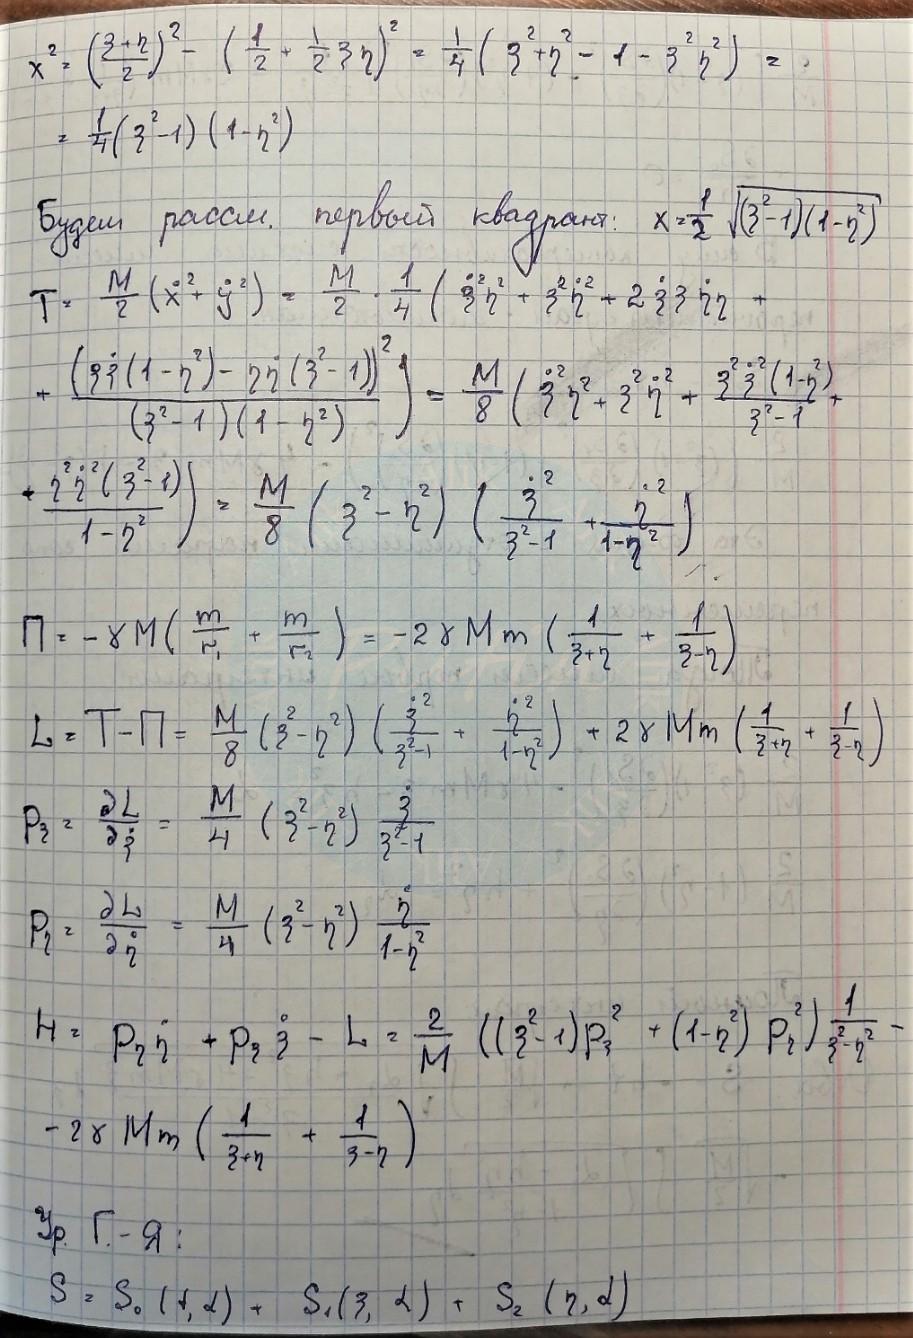 x² = ((ξ+η)/2)² - (1/2 + 1/2 ξη)² = 1/4 (ξ² + η² - 1 - ξ²η²) =
= 1/4 (ξ²-1)(1-η²)
Будем рассм. первый квадрант: x = 1/2 √((ξ²-1)(1-η²))
T = M/2 (ẋ² + ẏ²) = M/2 · 1/4 (ξ̇²η² + ξ²η̇² + 2ξ̇ξη̇η +
+ (ξξ̇(1-η²) - ηη̇(ξ²-1))² / ((ξ²-1)(1-η²))) = M/8 (ξ̇²η² + ξ²η̇² + ξ²ξ̇²(1-η²)/(ξ²-1) +
+ η²η̇²(ξ²-1)/(1-η²)) = M/8 (ξ² - η²) (ξ̇²/(ξ²-1) + η̇²/(1-η²))
П = -γM (m/r₁ + m/r₂) = -2γMm (1/(ξ+η) + 1/(ξ-η))
L = T - П = M/8 (ξ²-η²) (ξ̇²/(ξ²-1) + η̇²/(1-η²)) + 2γMm (1/(ξ+η) + 1/(ξ-η))
p_ξ = ∂L/∂ξ̇ = M/4 (ξ²-η²) ξ̇/(ξ²-1)
p_η = ∂L/∂η̇ = M/4 (ξ²-η²) η̇/(1-η²)
H = p_η η̇ + p_ξ ξ̇ - L = 2/M ((ξ²-1)p_ξ² + (1-η²) p_η²) 1/(ξ²-η²) -
- 2γMm (1/(ξ+η) + 1/(ξ-η))
Ур. Г.-Я:
S = S₀ (t, α) + S₁ (ξ, α) + S₂ (η, α)